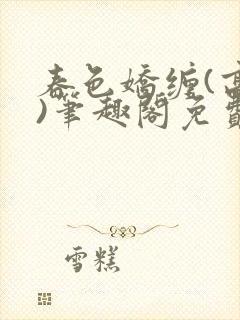 春色嬌纏(
)筆趣閣免
雪糕